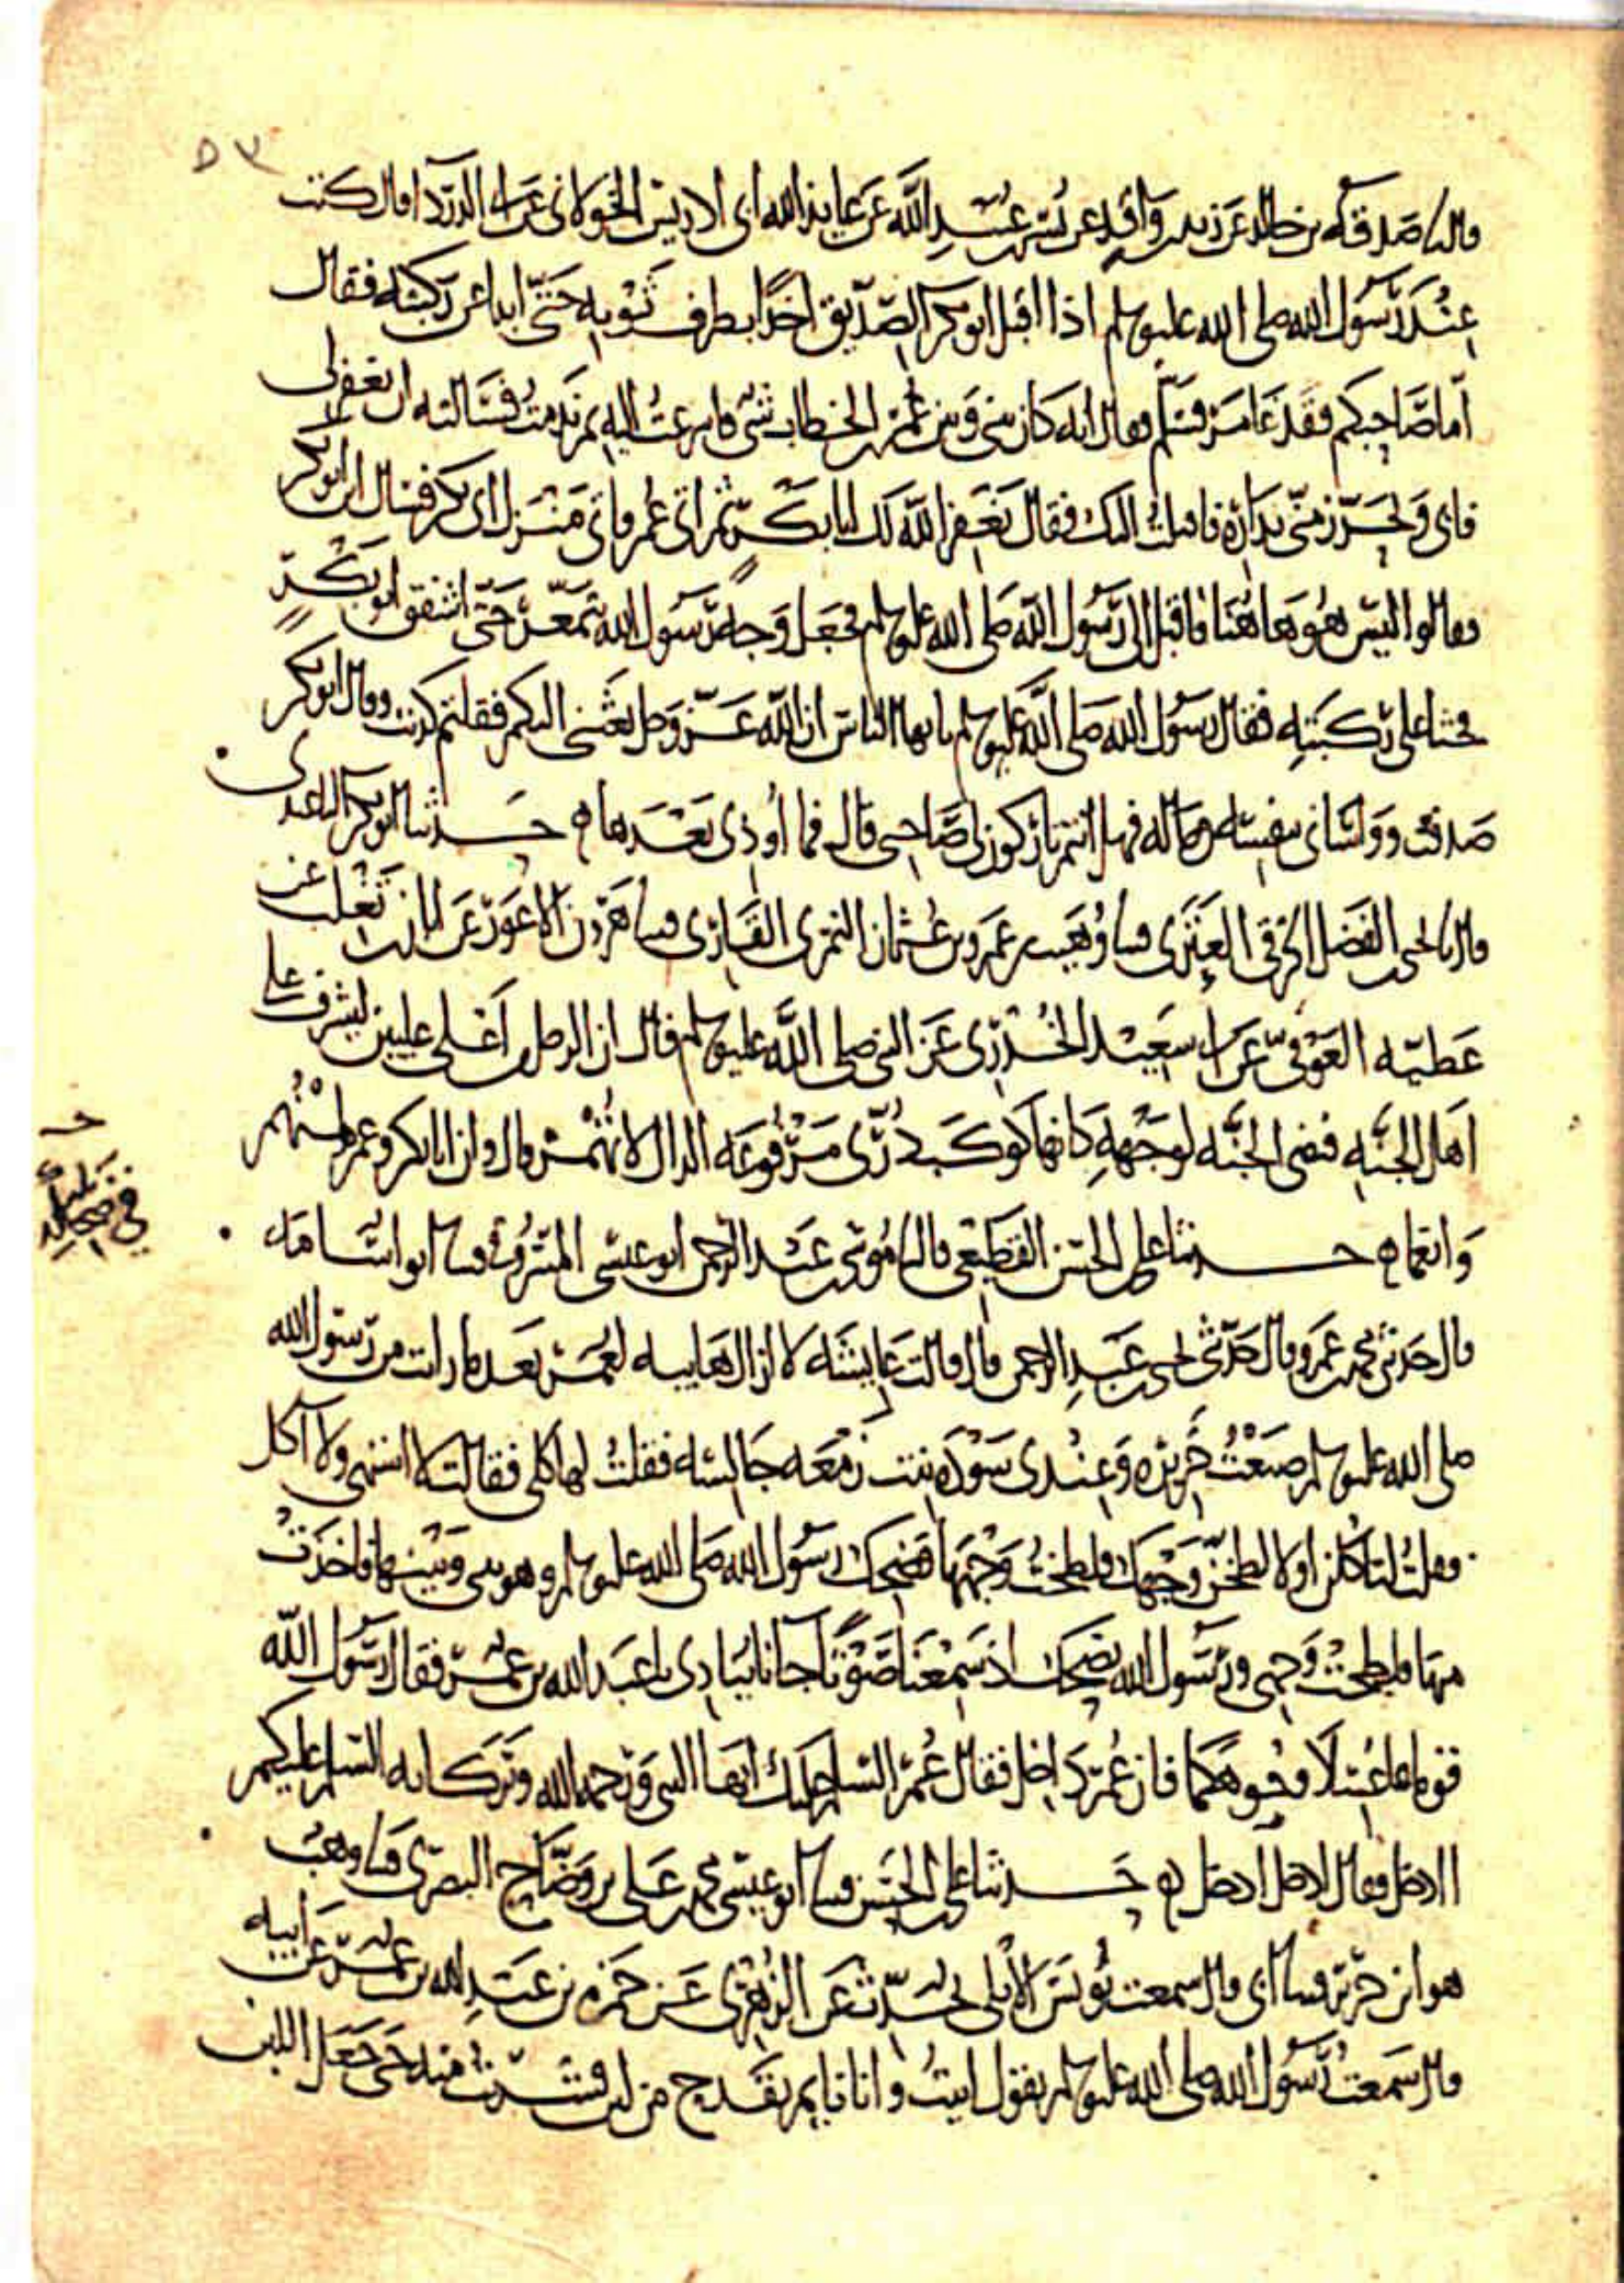 ٥٣
قال نا صدقة بن خالد عن زيد بن واقد عن بسر بن عبيد الله عن عايذ الله ابى الادريس الخولانى عن ابى الدرداء قال كنت
عند رسول الله صلى الله عليه وسلم اذا اقبل ابو بكر الصديق اخذا بطرف ثوبه حتى ابدا عن ركبته فقال
اما صاحبكم فقد غامر فسلم وقال انه كان بينى وبين عمر بن الخطاب شى فاسرعت اليه ثم ندمت فسالته ان يغفر لى
فابى وتحرز منى بداره فاقبلت اليك فقال يغفر الله لك يا با بكر ثم اتى عمر فاتى منزل ابى بكر فسال اين ابو بكر
وقالوا اليس هو هاهنا فاقبل الى رسول الله صلى الله عليه وسلم فجعل وجه رسول الله يتمعر حتى اشفق ابو بكر
فجثا على ركبتيه فقال رسول الله صلى الله عليه وسلم يا ايها الناس ان الله عز وجل بعثنى اليكم فقلتم كذبت وقال ابو بكر
صدقت وواسانى بنفسه وماله فهل انتم تاركون لى صاحبى قال فما اوذى بعدها ه حدثنا ابو بكر الباغندى
قال نا يحيى بن الفضل الخرقى العنزى وسا وهيب بن عمرو بن عثمان النمرى القارى وسا هرون الاعور عن ابان بن تغلب عن
عطية العوفى عن ابى سعيد الخدرى عن النبى صلى الله عليه وسلم قال ان الرجل من اعلى عليين ليشرف على
اهل الجنة فتضى الجنة لوجهه كانها كوكب درى مرفوعة الدال لا تهمز قال وان ابا بكر وعمر لمنهم
وانعما ه حدثنا على بن الحسن القطيعى قال نا موسى بن عبد الرحمن ابو عيسى المسروقى وسا ابو اسامة
قال حدثنى محمد بن عمرو قال حدثنى يحيى بن عبد الرحمن قال قالت عايشة لا ازال هايبة لعمر بعد ما رات من رسول الله
صلى الله عليه وسلم صنعت خزيرة وعندى سودة بنت زمعة جالسة فقلت لها كلى فقالت لا اشتهى ولا اكل
فقلت لتاكلن او لالطخن وجهك فلطخت وجهها فضحك رسول الله صلى الله عليه وسلم وهو بينى وبينها فاخذت
منها فلطخت وجهى ورسول الله يضحك اذ سمعنا صوتا جانا ينادى يا عبد الله بن عمر فقال رسول الله
قوما فاغسلا وجوهكما فان عمر داخل فقال عمر السلم عليك ايها النبى ورحمة الله وبركاته السلم عليكم
اادخل وقال ادخل ادخل ه حدثنا على بن الحسن وسا ابو عيسى محمد بن على بن وضاح البصرى وسا وهب
هو ابن جرير وسا ابى قال سمعت يونس الايلى يحدث عن الزهرى عن حمزة بن عبد الله بن عمر عن ابيه
قال سمعت رسول الله صلى الله عليه وسلم يقول اتيت وانا نايم بقدح من لبن فشربت منه حتى جعل اللبن